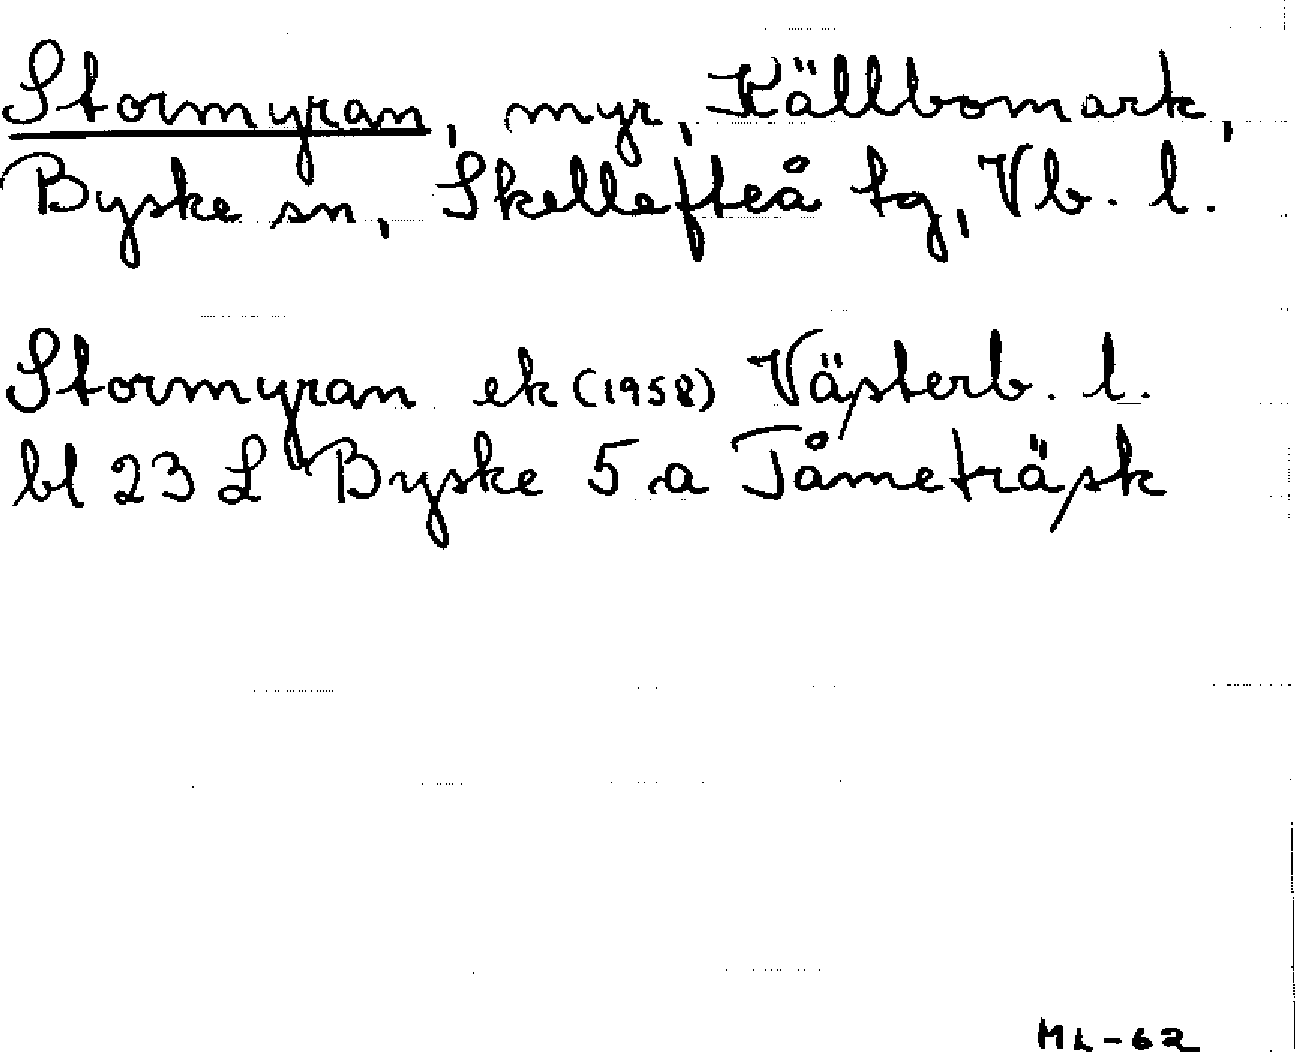 Stormyran, myr, Källbomark,
Byske sn, Skellefteå tg, Vb. l.
Stormyran ek (1958) Västerb. l.
bl 23 L Byske 5 a Tåmeträsk
ML-62